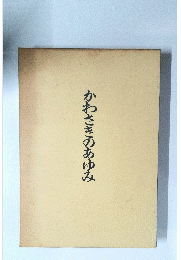 かわさきのあゆみ